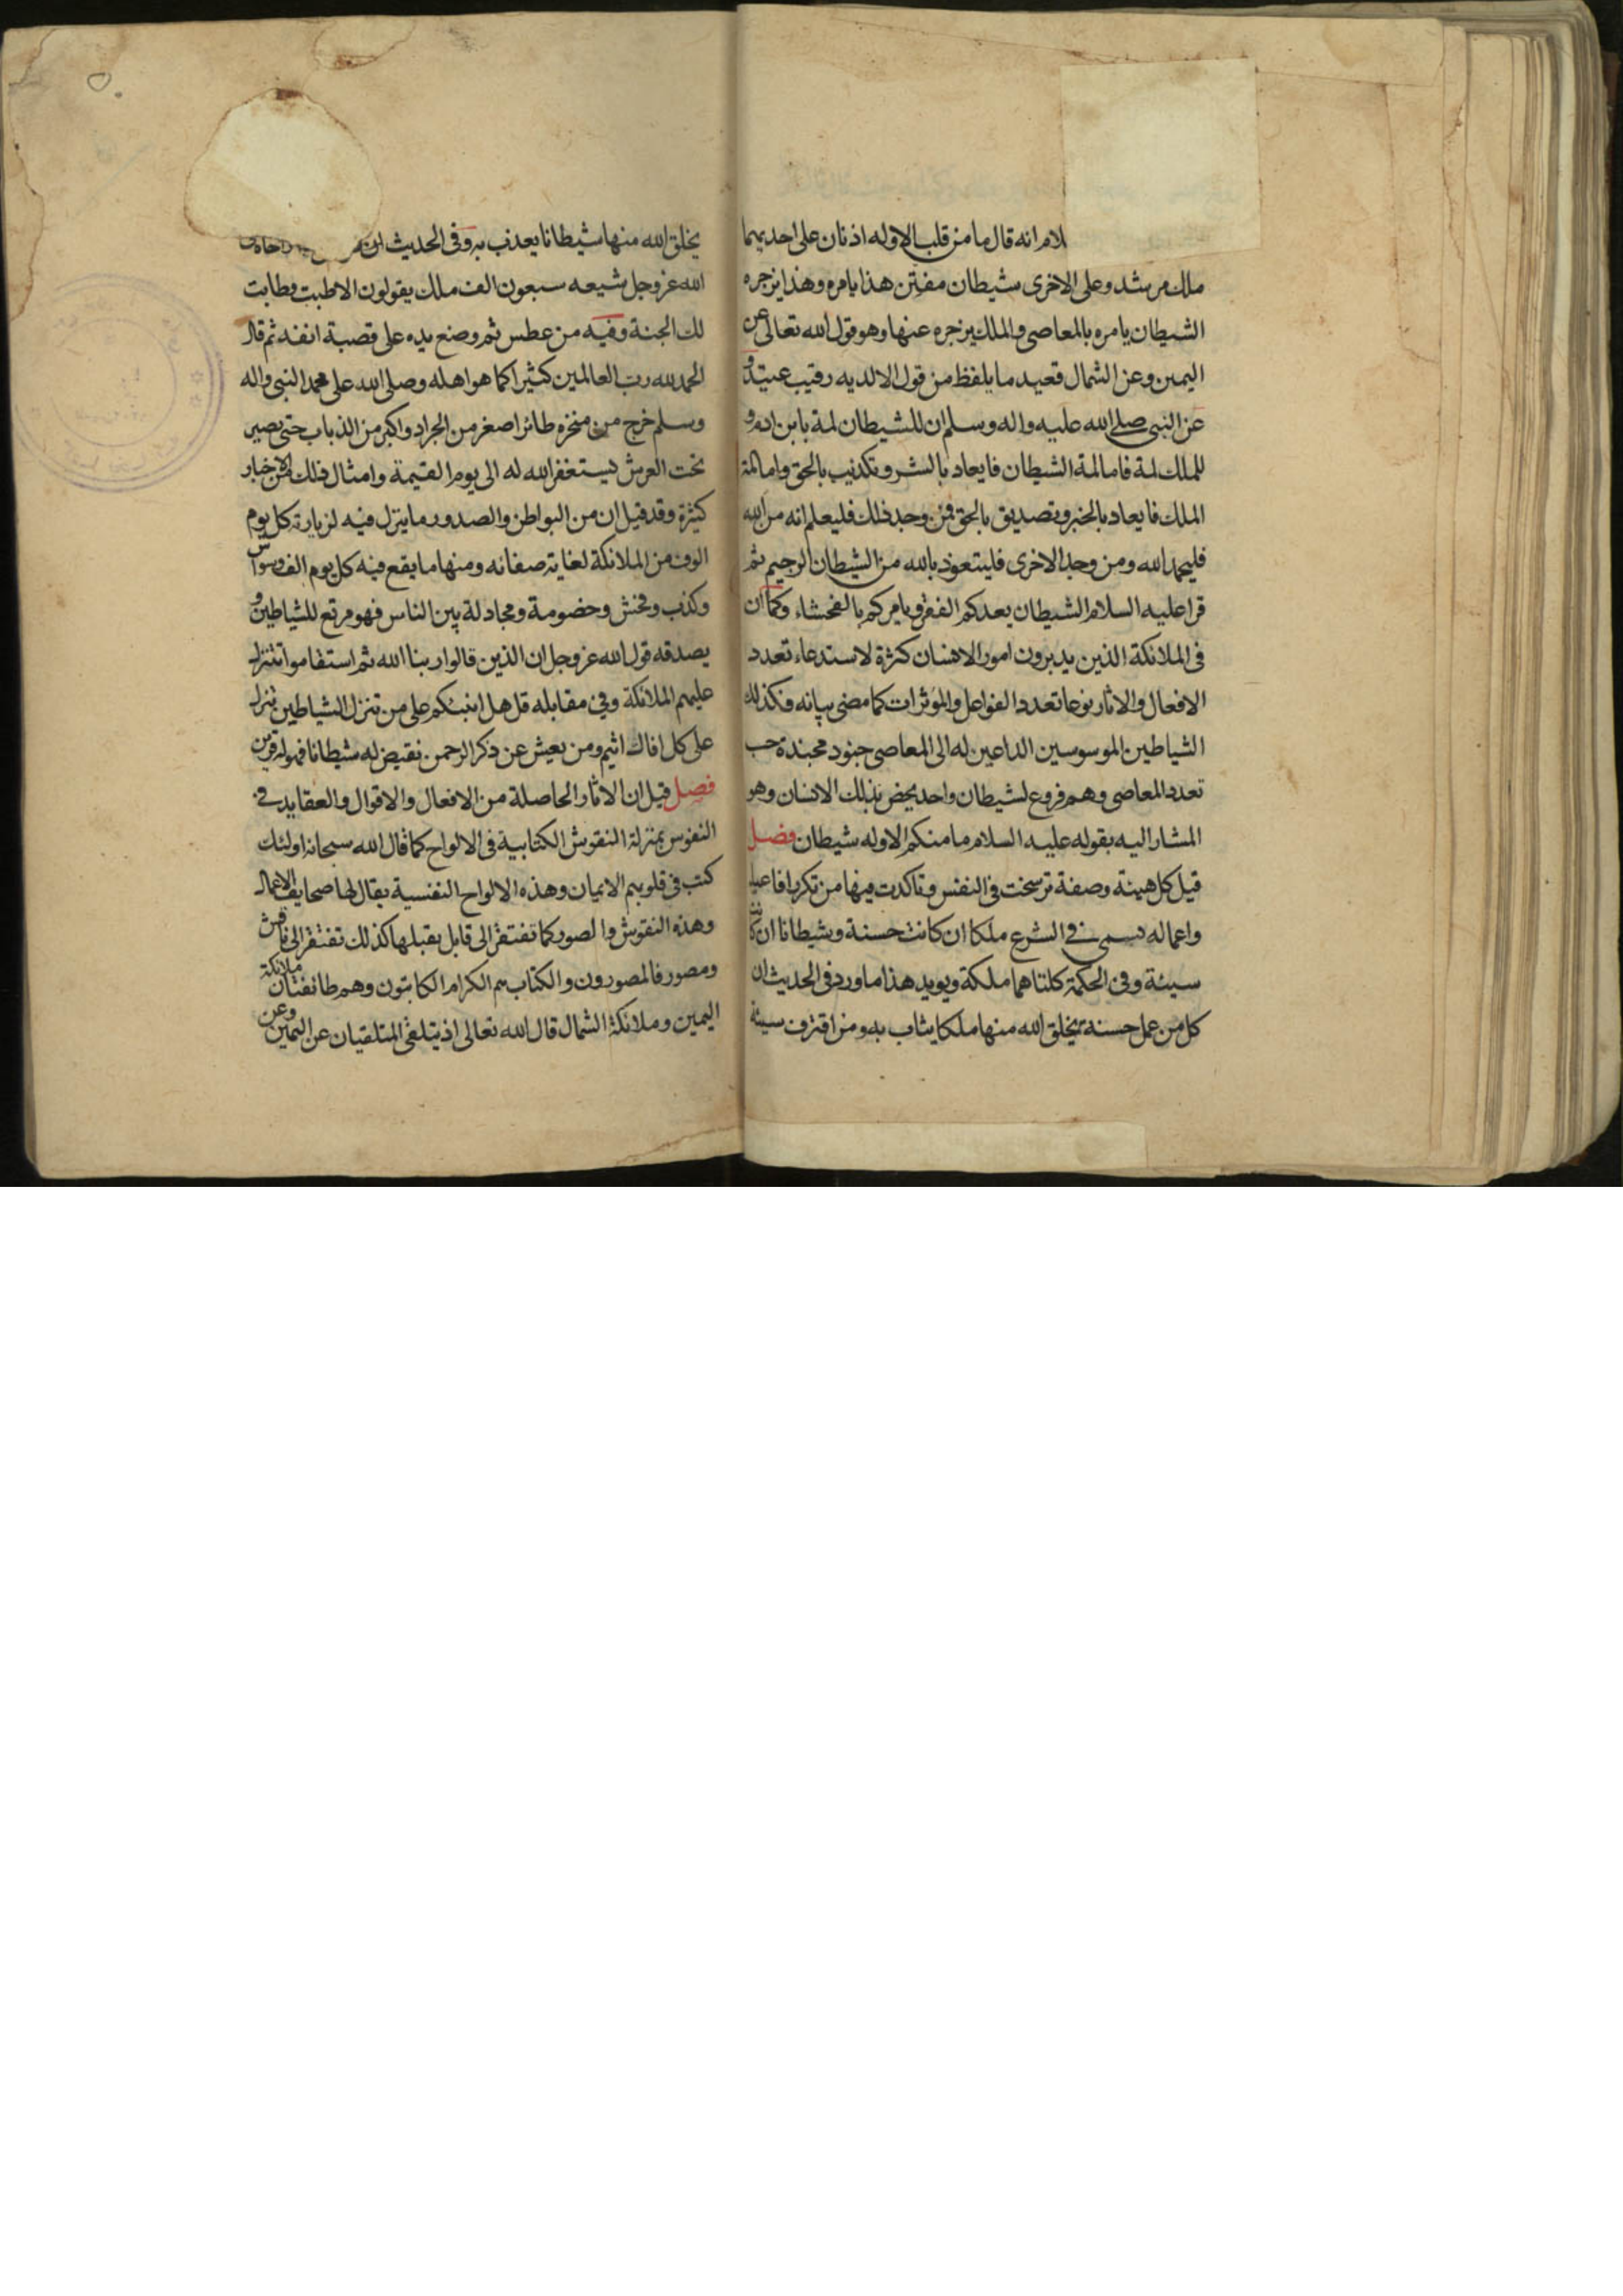 لام انه قال ما من قلب الا وله اذنان على احديهما
ملك مرشد وعلى الاخرى شيطان مفتن هذا يامره وهذا يزجره
الشيطان يامره بالمعاصى والملك يزجره عنها وهو قول الله تعالى عن
اليمين وعن الشمال قعيد ما يلفظ من قول الا لديه رقيب عتيد و
عن النبى صلى الله عليه واله وسلم ان للشيطان لمة بابن ادم و
للملك لمة فاما لمة الشيطان فايعاد بالشر وتكذيب بالحق واما لمة
الملك فايعاد بالخير وتصديق بالحق فمن وجد ذلك فليعلم انه من الله
فليحمد الله ومن وجد الاخرى فليتعوذ بالله من الشيطان الرجيم ثم
قرا عليه السلام الشيطان يعدكم الفقر ويامركم بالفحشاء وكما ان
فى الملائكة الذين يدبرون امور الانسان كثرة لاستدعاء تعدد
الافعال والاثار نوعا تعدد الفواعل والمؤثرات كما مضى بيانه فكذلك
الشياطين الموسوسين الداعين له الى المعاصى جنود مجندة حسب
تعدد المعاصى وهم فروع لشيطان واحد يخص بذلك الانسان وهو
المشار اليه بقوله عليه السلام ما منكم الا وله شيطان فصل
قيل كل هيئة وصفة ترسخت فى النفس وتاكدت فيها من تكرر افاعيل
واعماله تسمى فى الشرع ملكا ان كانت حسنة وشيطانا ان كانت
سيئة وفى الحكمة كلتاهما ملكة ويويد هذا ما ورد فى الحديث ان
كل من عمل حسنة يخلق الله منها ملكا يثاب به ومن اقترف سيئة
يخلق الله منها شيطانا يعذب به وفى الحديث ان من
الله عز وجل شيعه سبعون الف ملك يقولون الا طبت وطابت
لك الجنة وفيه من عطس ثم وضع يده على قصبة انفه ثم قال
الحمد لله رب العالمين كثيرا كما هو اهله وصلى الله على محمد النبى واله
وسلم خرج من منخره طائر اصغر من الجراد واكبر من الذباب حتى يصير
تحت العرش يستغفر الله له الى يوم القيمة وامثال ذلك من الاخبار
كثيرة وقد قيل ان من البواطن والصدور ما ينزل فيه لزيارته كل يوم
الوف من الملائكة لغاية صفائه ومنها ما يقع فيه كل يوم الف وسواس
وكذب وفحش وخصومة ومجادلة بين الناس فهو مرتع للشياطين و
يصدقه قول الله عز وجل ان الذين قالوا ربنا الله ثم استقاموا تتنزل
عليهم الملائكة وفى مقابله قل هل انبئكم على من تنزل الشياطين تنزل
على كل افاك اثيم ومن يعش عن ذكر الرحمن نقيض له شيطانا فهو له قرين
فصل قيل ان الاثار الحاصلة من الافعال والاقوال والعقايد فى
النفوس بمنزلة النقوش الكتابية فى الالواح كما قال الله سبحانه اولئك
كتب فى قلوبهم الايمان وهذه الالواح النفسية يقال لها صحايف الاعمال
وهذه النقوش والصور كما تفتقر الى قابل يقبلها كذلك تفتقر الى ناقش
ومصور فالمصورون والكتاب هم الكرام الكاتبون وهم طائفتان ملائكة
اليمين وملائكة الشمال قال الله تعالى اذ يتلقى المتلقيان عن اليمين وعن